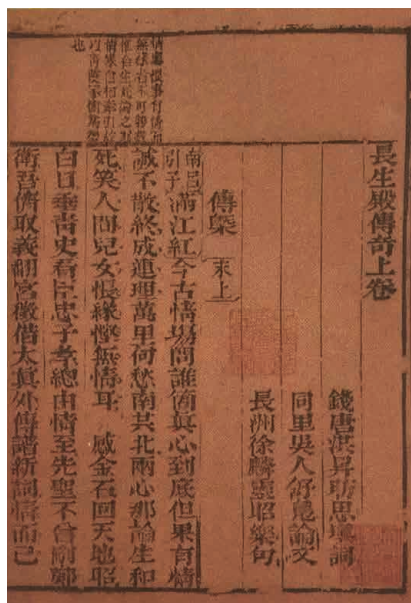 長生殿傳奇上卷
錢唐洪昇昉思填詞
同里吳人舒鳧論文
長洲徐麟靈昭樂句
傳槩 末上
南呂引子 滿江紅 今古情場問誰箇真心到底但果有精
誠不散終成連理萬里何愁南共北兩心那論生和
死笑人間兒女悵緣慳無情耳 感金石回天地昭
白日垂青史看臣忠子孝總由情至先聖不曾刪鄭
衛吾儕取義翻宮徵借太真外傳譜新詞情而已